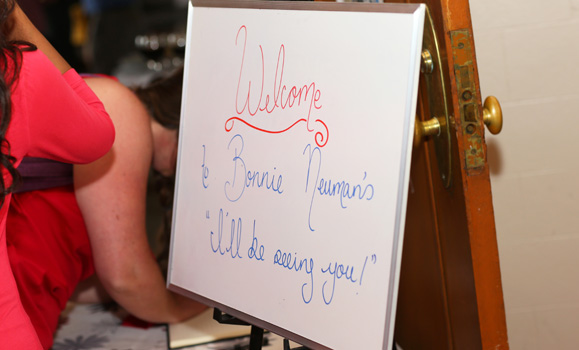 Welcome
to Bonnie Neuman's
"I'll be seeing you!"